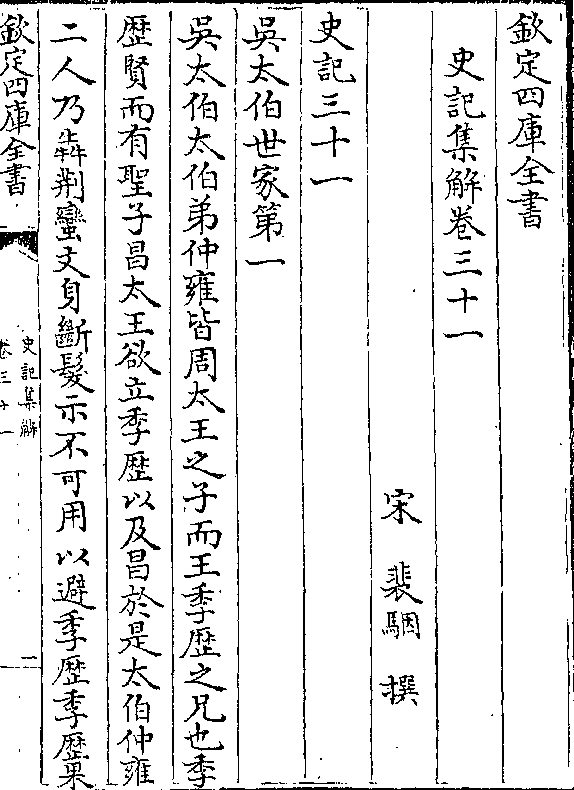 欽定四庫全書
史記集解卷三十一
宋 裴駰 撰
史記三十一
吳太伯世家第一
吳太伯太伯弟仲雍皆周太王之子而王季歴之兄也季
歴賢而有聖子昌太王欲立季歴以及昌於是太伯仲雍
二人乃犇荆蠻文身斷髮示不可用以避季歴季歴果
欽定四庫全書
史記集解
卷三十一
一